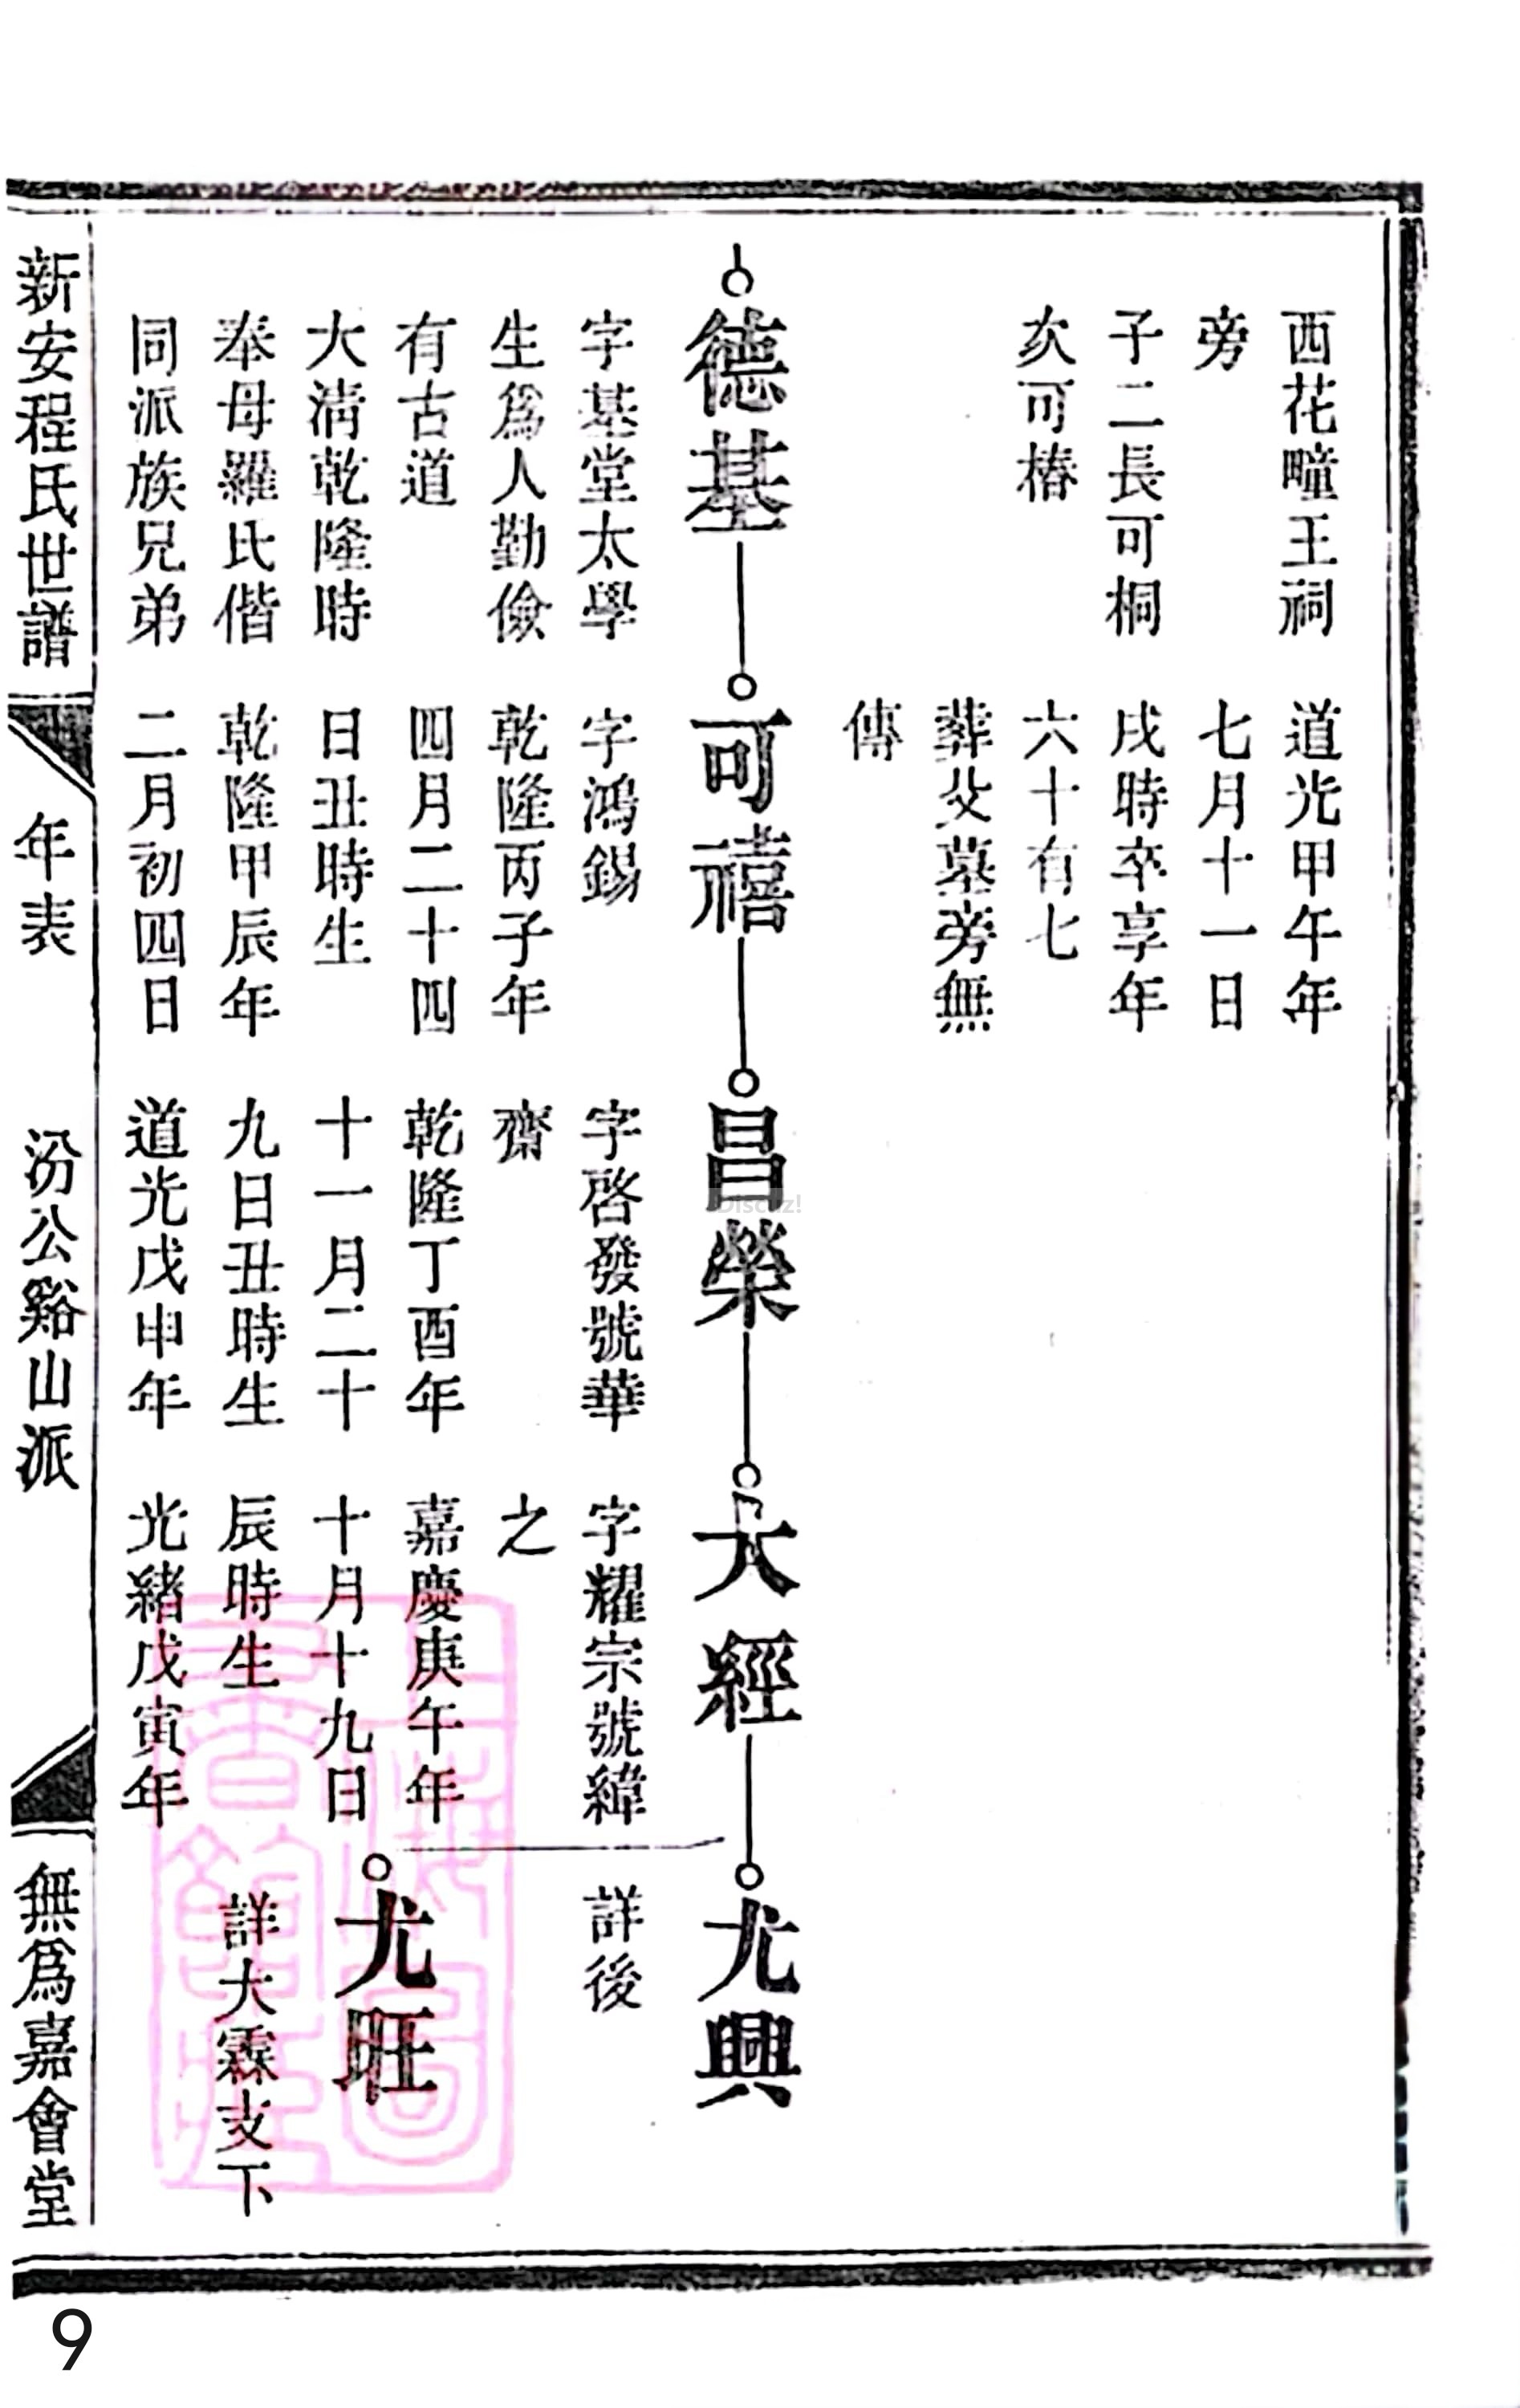 西花疃王祠
旁
子二長可桐
次可椿
道光甲午年
七月十一日
戌時卒享年
六十有七
葬父墓旁無
傳
德基
字基堂太學
生爲人勤儉
有古道
大淸乾隆時
奉母羅氏偕
同派族兄弟
可禧
字鴻錫
乾隆丙子年
四月二十四
日丑時生
乾隆甲辰年
二月初四日
昌榮
字啓發號華
齋
乾隆丁酉年
十一月二十
九日丑時生
道光戊申年
大經
字耀宗號緯
之
嘉慶庚午年
十月十九日
辰時生
光緒戊寅年
尤興
詳後
尤旺
詳大霖支下
新安程氏世譜
年表
汾公谿山派
無爲嘉會堂
Discuz!
9